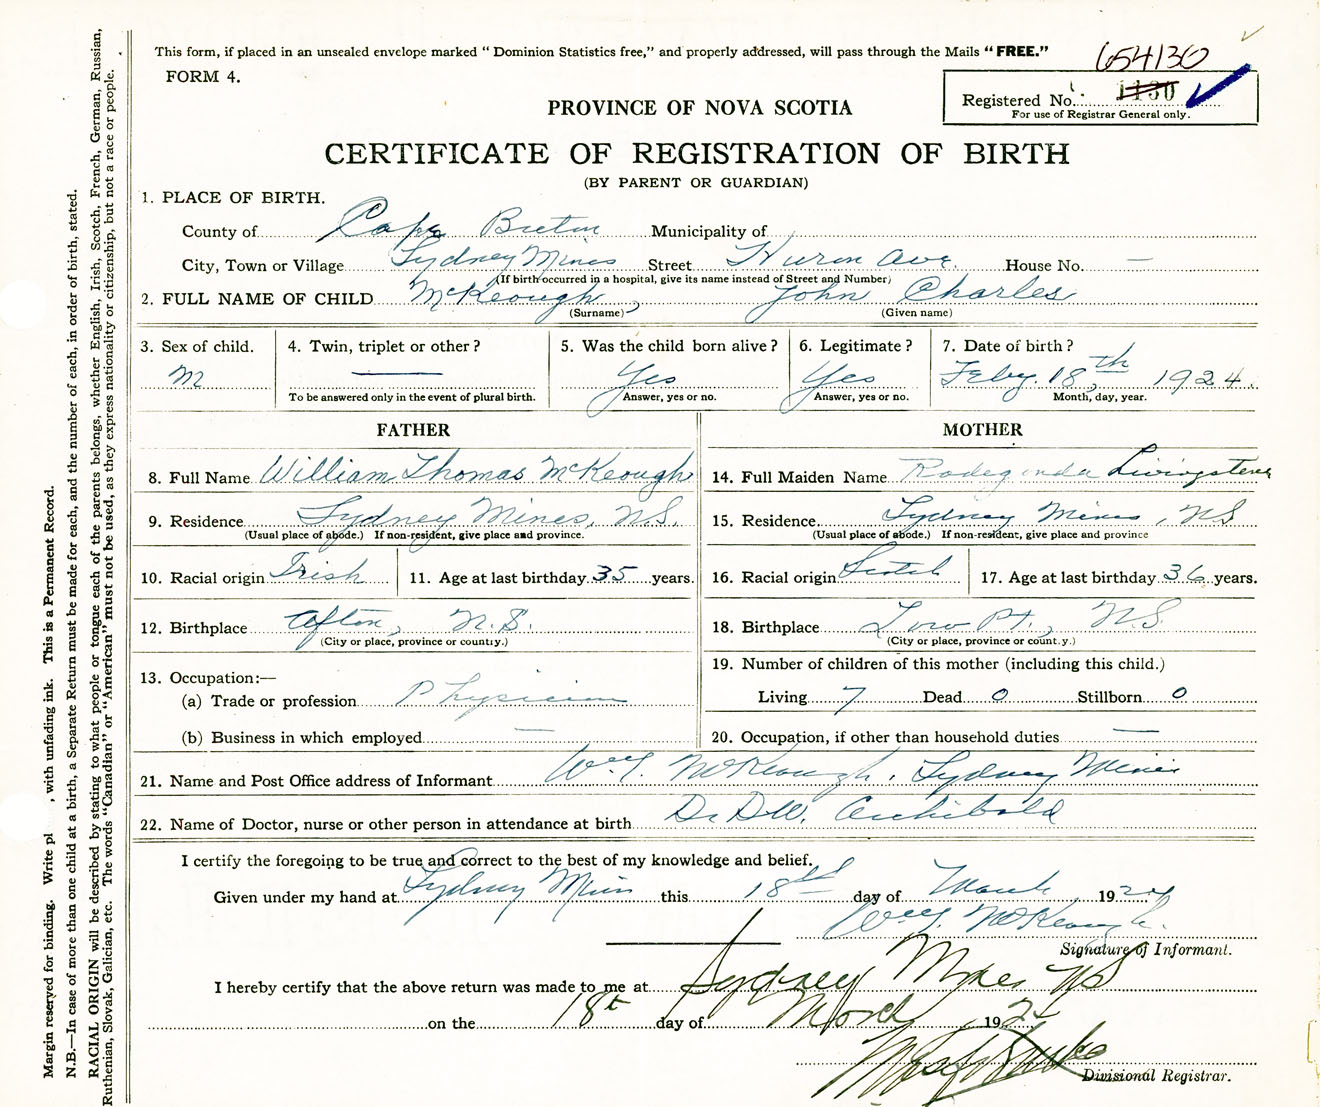 This form, if placed in an unsealed envelope marked “ Dominion Statistics free,” and properly addressed, will pass through the Mails “ FREE.”
654130
FORM 4.
Registered No. 1130
For use of Registrar General only.
PROVINCE OF NOVA SCOTIA
CERTIFICATE OF REGISTRATION OF BIRTH
(BY PARENT OR GUARDIAN)
1. PLACE OF BIRTH.
County of Cape Breton Municipality of
City, Town or Village Sydney Mines Street Huron Ave. House No. —
(If birth occurred in a hospital, give its name instead of Street and Number)
2. FULL NAME OF CHILD McKeough, John Charles
(Surname) (Given name)
3. Sex of child. 4. Twin, triplet or other ? 5. Was the child born alive ? 6. Legitimate ? 7. Date of birth ?
M — Yes Yes Feby. 18th, 1924.
To be answered only in the event of plural birth. Answer, yes or no. Answer, yes or no. Month, day, year.
FATHER MOTHER
8. Full Name William Thomas McKeough 14. Full Maiden Name Radegonda Livingstone
9. Residence Sydney Mines, N.S. 15. Residence Sydney Mines, NS
(Usual place of abode.) If non-resident, give place and province. (Usual place of abode.) If non-resident, give place and province
10. Racial origin Irish 11. Age at last birthday 35 years. 16. Racial origin Scotch 17. Age at last birthday 36 years.
12. Birthplace Afton, N.S. 18. Birthplace Low Pt., N.S.
(City or place, province or country.) (City or place, province or country.)
13. Occupation:— 19. Number of children of this mother (including this child.)
(a) Trade or profession Physician Living 7 Dead 0 Stillborn 0
(b) Business in which employed — 20. Occupation, if other than household duties —
21. Name and Post Office address of Informant Wm T. McKeough, Sydney Mines
22. Name of Doctor, nurse or other person in attendance at birth Dr D.W. Archibald
I certify the foregoing to be true and correct to the best of my knowledge and belief.
Given under my hand at Sydney Mines this 18th day of March 1924
Wm T. McKeough.
Signature of Informant.
I hereby certify that the above return was made to me at Sydney Mines NS
on the 18th day of March 192
Divisional Registrar.
Margin reserved for binding. Write pl , with unfading ink. This is a Permanent Record.
N.B.—In case of more than one child at a birth, a Separate Return must be made for each, and the number of each, in order of birth, stated.
RACIAL ORIGIN will be described by stating to what people or tongue each of the parents belongs, whether English, Irish, Scotch, French, German, Russian,
Ruthenian, Slovak, Galician, etc. The words “Canadian” or “American” must not be used, as they express nationality or citizenship, but not a race or people.